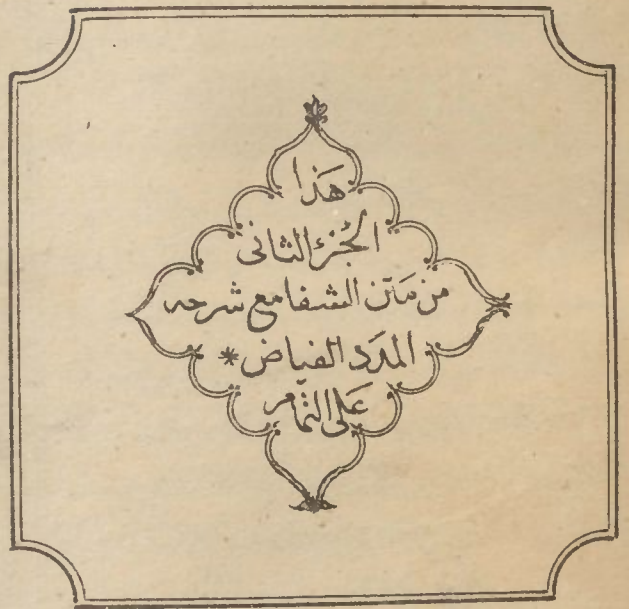 هَذا
الجُزْءُ الثانى
من متن الشفا مع شرحه
المدَد الفياض *
عَلى التمَامِ